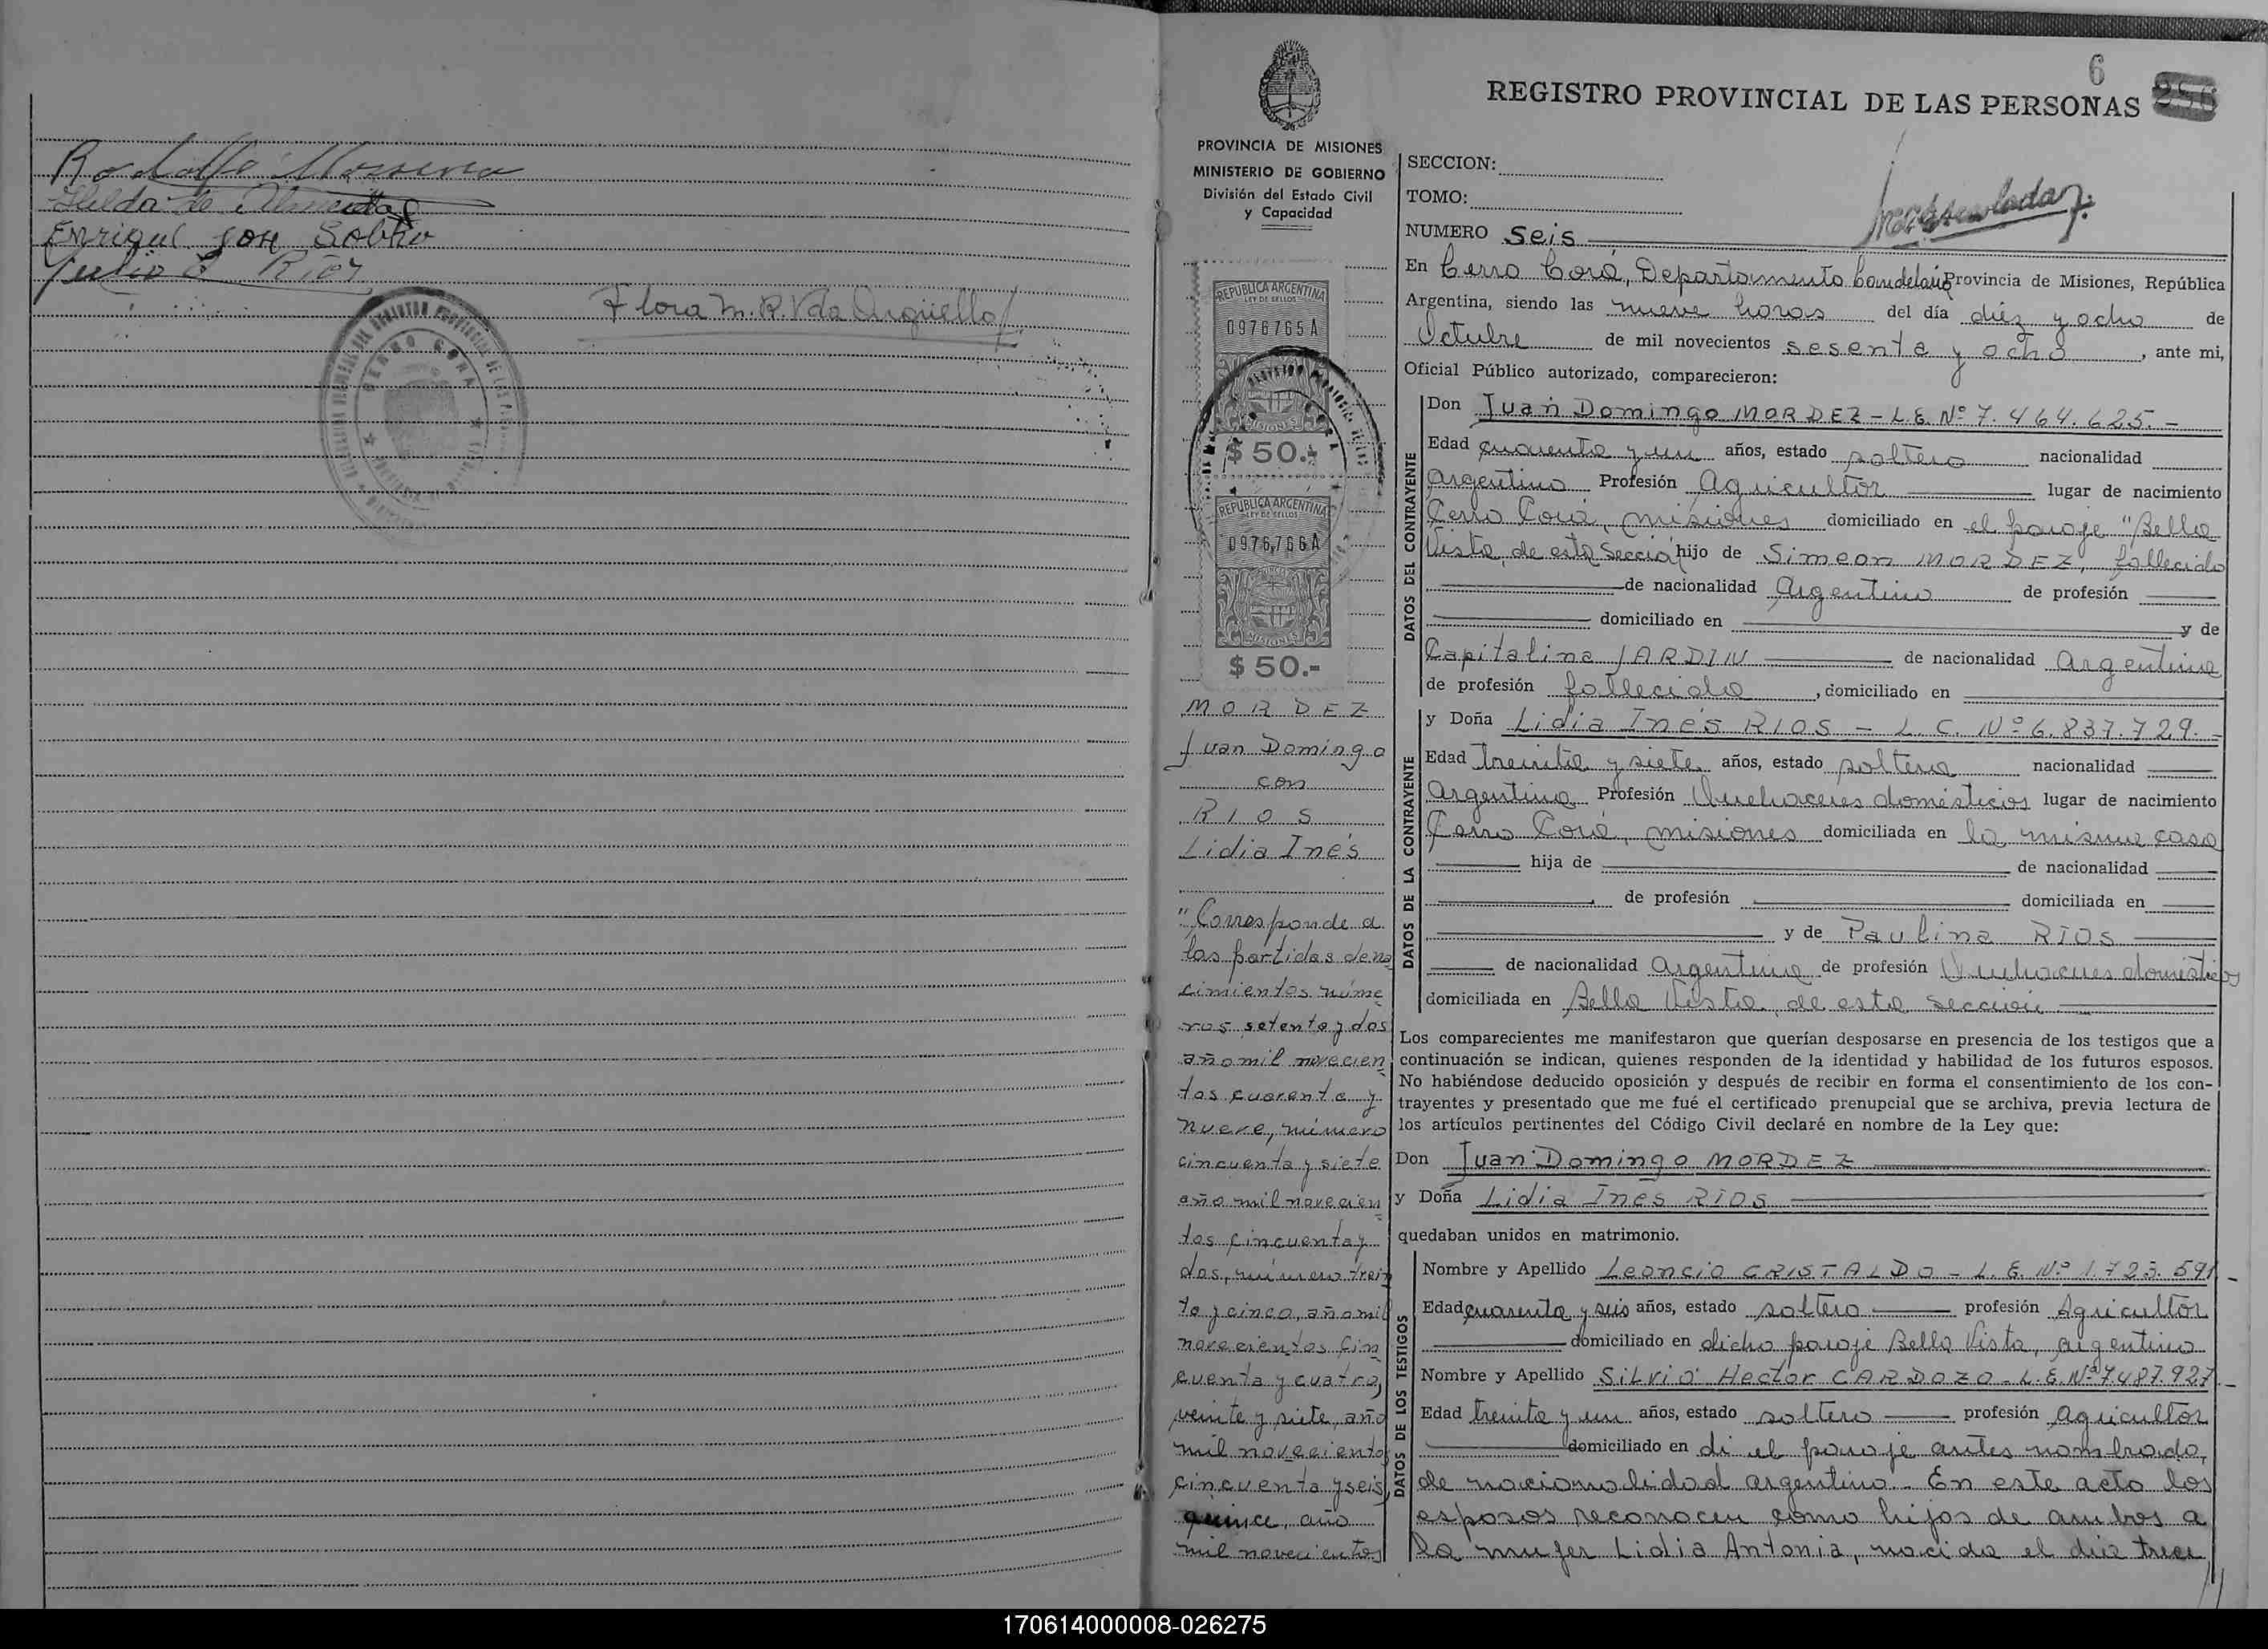 Rodolfo
Hilda de
Enrique José Sobko
Julio Rios
Flora M. R. Vda Argüello
CERRO CORA
PROVINCIA DE MISIONES
MINISTERIO DE GOBIERNO
División del Estado Civil
y Capacidad
REPUBLICA ARGENTINA
LEY DE SELLOS
0976765A
MISIONES
$ 50.-
REPUBLICA ARGENTINA
LEY DE SELLOS
0976,766A
MISIONES
$ 50.-
MORDEZ
Juan Domingo
con
RIOS
Lidia Inés
"Corresponde a
las partidas de na
cimientos núme
ros setenta y dos
año mil novecien
tos cuarenta y
nueve, número
cincuenta y siete
año mil novecien
tos cincuenta y
dos, número trein
ta y cinco, año mil
novecientos cin
cuenta y cuatro,
veinte y siete, año
mil novecientos
cincuenta y seis,
quince, año
mil novecientos
6
REGISTRO PROVINCIAL DE LAS PERSONAS 256
SECCION:
TOMO:
NUMERO Seis
En Cerro Corá, Departamento Candelaria Provincia de Misiones, República
Argentina, siendo las nueve horas del día diéz y ocho de
Octubre de mil novecientos sesenta y ocho, ante mi,
Oficial Público autorizado, comparecieron:
DATOS DEL CONTRAYENTE
Don Juan Domingo MORDEZ - L.E. Nº 7.464.625.-
Edad cuarenta y un años, estado soltero nacionalidad
Argentino Profesión Agricultor lugar de nacimiento
Cerro Corá, Misiones domiciliado en el paraje "Bella
Vista, de esta Sección hijo de Simeon MORDEZ, fallecido
de nacionalidad Argentino de profesión
domiciliado en y de
Capitalina JARDIN de nacionalidad Argentina
de profesión fallecida, domiciliado en
DATOS DE LA CONTRAYENTE
y Doña Lidia Inés RIOS - L.C. Nº 6.837.729.-
Edad treinta y siete años, estado soltera nacionalidad
Argentina Profesión Quehaceres domésticos lugar de nacimiento
Cerro Corá, Misiones domiciliada en la misma casa
hija de de nacionalidad
de profesión domiciliada en
y de Paulina RIOS
de nacionalidad Argentina de profesión Quehaceres domésticos
domiciliada en Bella Vista, de esta sección
Los comparecientes me manifestaron que querían desposarse en presencia de los testigos que a
continuación se indican, quienes responden de la identidad y habilidad de los futuros esposos.
No habiéndose deducido oposición y después de recibir en forma el consentimiento de los con-
trayentes y presentado que me fué el certificado prenupcial que se archiva, previa lectura de
los artículos pertinentes del Código Civil declaré en nombre de la Ley que:
Don Juan Domingo MORDEZ
y Doña Lidia Ines RIOS
quedaban unidos en matrimonio.
DATOS DE LOS TESTIGOS
Nombre y Apellido Leoncio CRISTALDO - L.E. Nº 1.723.591-
Edad cuarenta y seis años, estado soltero profesión Agricultor
domiciliado en dicho paraje Bella Vista, argentino
Nombre y Apellido Silvio Hector CARDOZO - L.E. Nº 7.487.927-
Edad treinta y un años, estado soltero profesión Agricultor
domiciliado en di el paraje antes nombrado,
de nacionalidad argentino. En este acto los
esposos reconocen como hijos de ambos a
la mujer Lidia Antonia, nacida el día trece
170614000008-026275